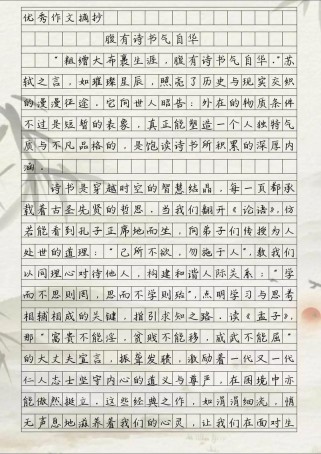 优秀作文摘抄
腹有诗书气自华
“粗缯大布裹生涯，腹有诗书气自华。”苏
轼之言，如璀璨星辰，照亮了历史与现实交织
的漫漫征途，它向世人昭告：外在的物质条件
不过是短暂的表象，真正能塑造一个人独特气
质与不凡品格的，是饱读诗书所积累的深厚内
涵。
诗书是穿越时空的智慧结晶，每一页都承
载着古圣先贤的哲思，当我们翻开《论语》，仿
若能看到孔子正席地而坐，向弟子们传授为人
处世的道理：“己所不欲，勿施于人”，教我们
以同理心对待他人，构建和谐人际关系：“学
而不思则罔，思而不学则殆”，点明学习与思考
相辅相成的关键，指引求知之路，读《孟子》，
那“富贵不能淫，贫贱不能移，威武不能屈”
的大丈夫宣言，振聋发聩，激励着一代又一代
仁人志士坚守内心的道义与尊严，在困境中亦
能傲然挺立，这些经典之作，如涓涓细流，悄
无声息地滋养着我们的心灵，让我们在面对生